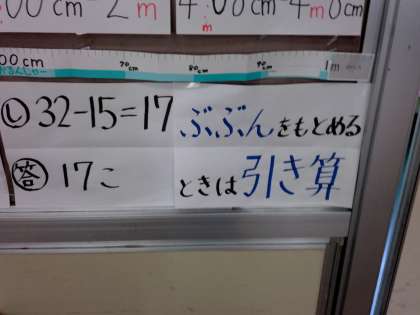 00cm-2m
4.08cm-4m8cm
m
00cm 70cm 80cm 90cm 1m
し 32-15=17
答 17こ
ぶぶんをもとめる
ときは引き算